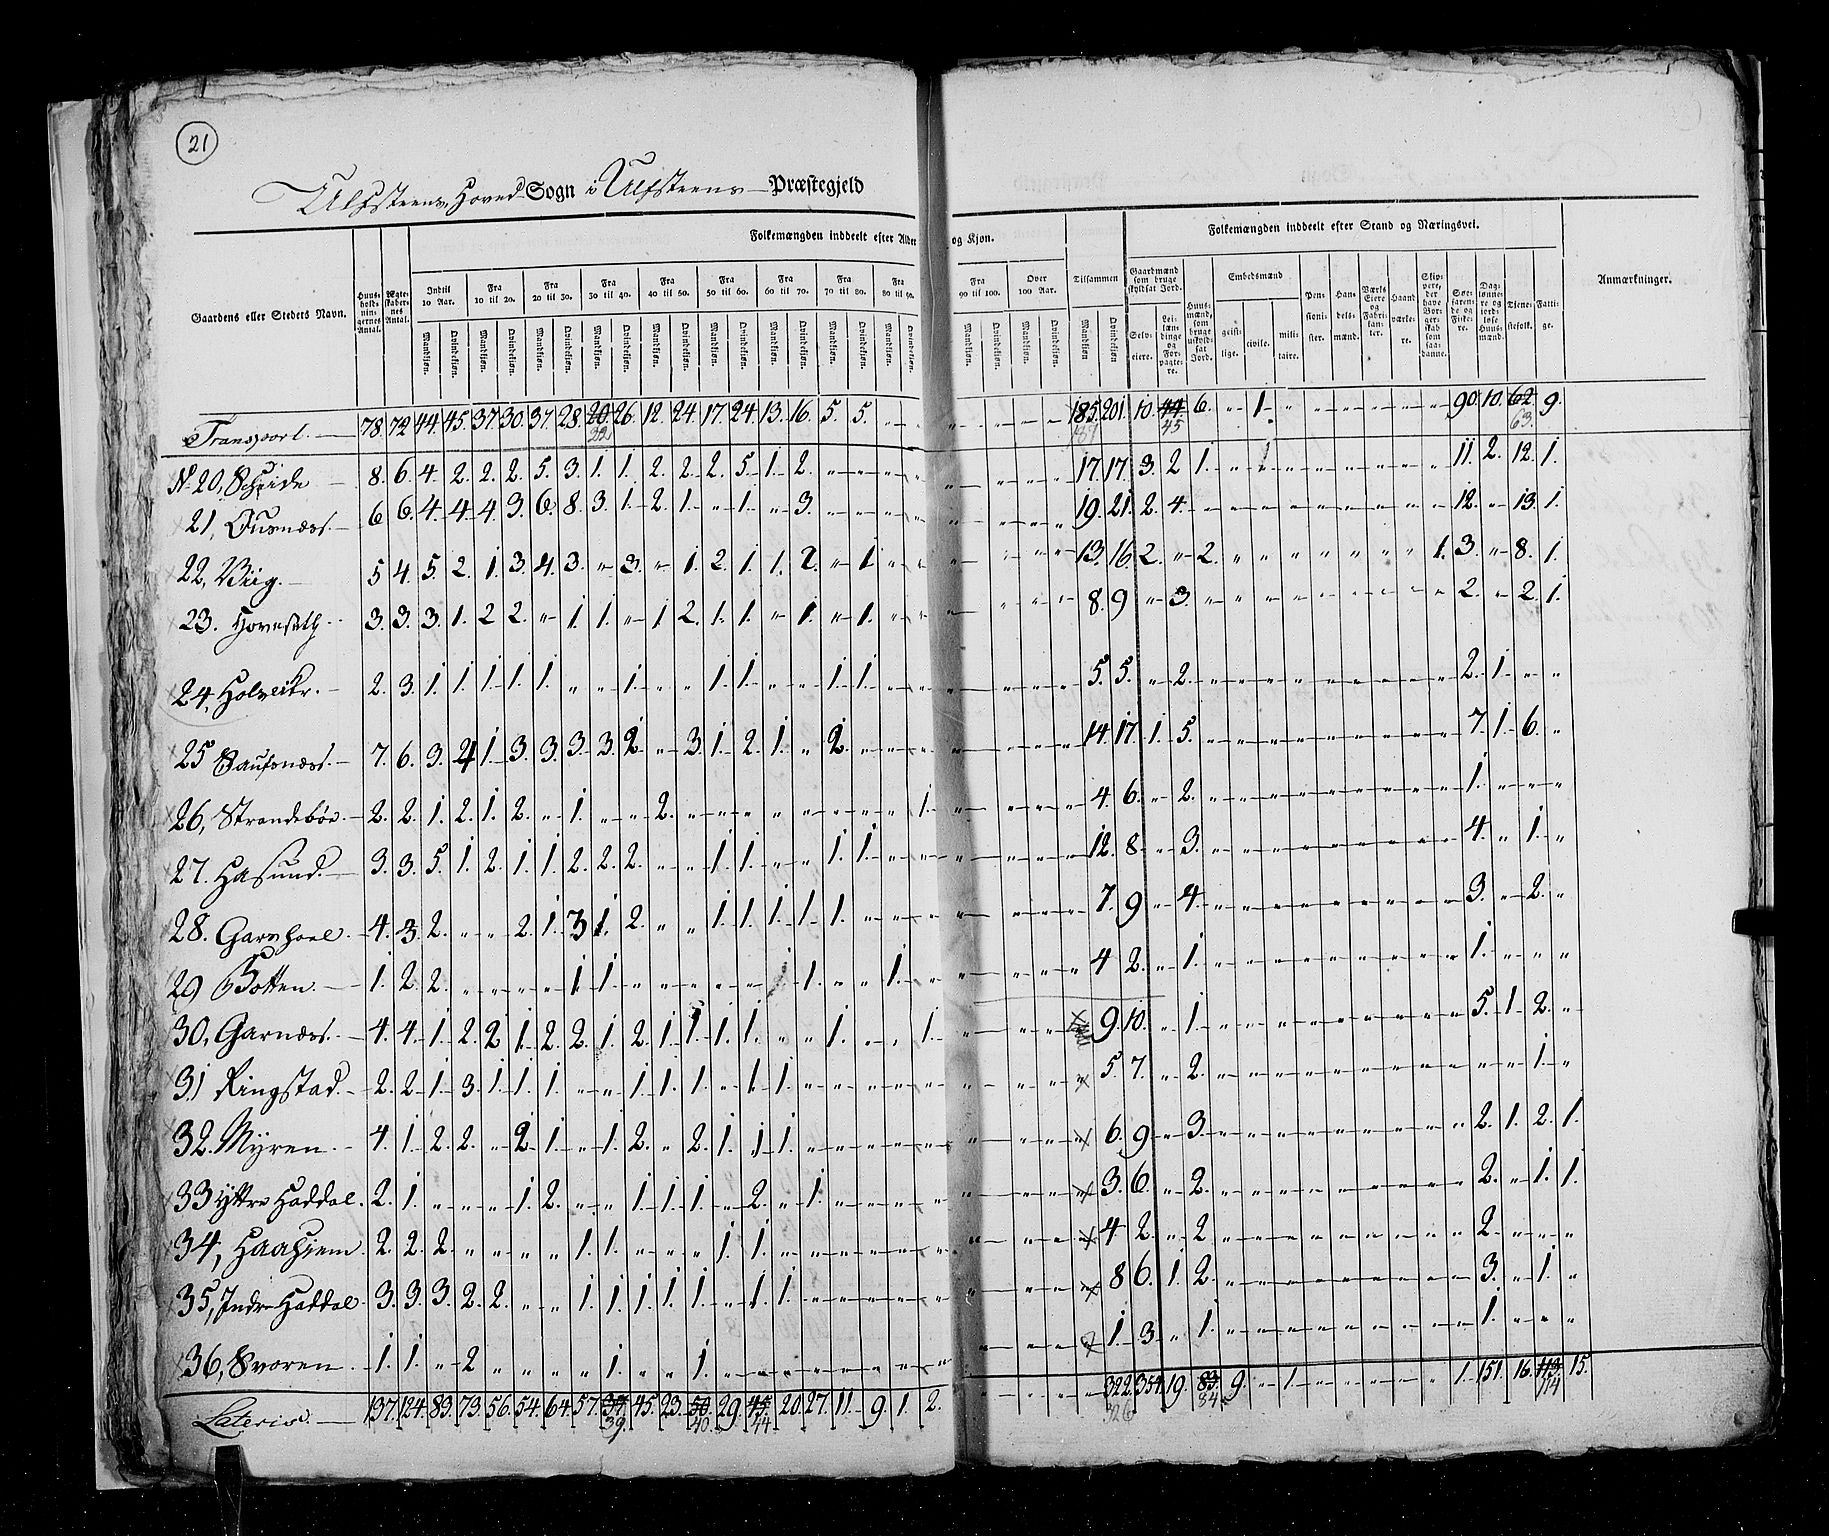 21
Ulfsteens Hoved Sogn i Ulfsteens Præstegjeld
Gaardens eller Steders Navn.
Huus-holdnin-gernes Antal.
Ægte-skaber-nes Antal.
Folkemængden inddeelt efter Alder og Kjøn.
Indtil 10 Aar. Fra 10 til 20. Fra 20 til 30. Fra 30 til 40. Fra 40 til 50. Fra 50 til 60. Fra 60 til 70. Fra 70 til 80. Fra 80 til 90. Fra 90 til 100. Over 100 Aar. Tilsammen
Mandkjøn. Qvindekjøn.
Folkemængden inddeelt efter Stand og Næringsvei.
Gaardmænd som bruge skyldsat Jord.
Selv-eiere.
Lei-læn-dinge og For-pagte-re.
Huus-mænd, som bruge uskyld-sat Jord.
Embedsmænd
geist-lige. civile. mili-taire.
Pen-sioni-ster.
Han-dels-mænd.
Værks Eiere og Fabri-kan-ter.
Haand-værke-re.
Skip-pere, der have Bor-ger-skab som saa-danne.
Søe-faren-de og Fiske-re.
Dag-lønne-re og jord-løse Huus-mænd.
Tjene-stefolk.
Fatti-ge.
Anmærkninger.
Transport 78. 72. 44. 45. 37. 30. 37. 28. 20. 26. 12. 24. 17. 24. 13. 16. 5. 5. 185. 201. 10. 44. 6. " 1. 90. 10. 62. 9.
22 187 45 63.
N 20, Scheide 8. 6. 4. 2. 2. 2. 5. 3. 1. 1. 2. 2. 2. 5. 1. 2. 17. 17. 3. 2. 1. 11. 2. 12. 1.
21, Ousnæss. 6 6. 4. 4. 4. 3. 6. 8. 3. 1. 2. 1. " 1. " 3. 19. 21. 2. 4. 12. " 13. 1.
22, Viig. 5 4. 5. 2. 1. 3. 4. 3. " 3. " 1. 2. 1. 1. 2. " 1. 13. 16. 2. " 2. 1. 3. " 8. 1.
23. Hovnseth 3. 3. 3. 1. 2 2. " 1. 1. " 1 2. 1. 1. " 1. " 1. 8. 9. " 3. 2. " 2. 1.
24, Holveikr. 2. 3. 1. 1. 1. 1. 1. " " 1. " " 1. 1. " " 1. 1. 5. 5. " 2. 2. 1. " "
25 Saufsnæss. 7. 6. 3. 4 1. 3. 3. 3. 3. 2. " 3. 1. 2. 1. " 2. 14. 17. 1. 5. 7. 1. 6. "
26, Strandebøe. 2. 2. 1. 2. 1. 2. " 1. " " 2. 1. 4. 6. " 2. 1. " " "
27. Hasund. 3. 3. 5. 1. 2. 1. 1. 2. 2. 2. " " 1. 1. " " 1. 1. 12. 8. " 3. 4. " 1. "
28. Garshoel. 4. 3. 2. " " 2. 1. 3 1. 2. " " 1. 1. 1. 1. 1. 7. 9. " 4. 3. " 2. "
29 Botten. 1. 2. 2. " " " " 1. 1. 1. " " 1. 4 2. " 1. 1. " " "
30, Garnæss. 4. 4. 1. 2. 2 1. 2. 2. 1. 2. 1. 1. 1. 1. " " 1. " " 1. 9. 10. " 1. 5. 1. 2. "
31 Ringstad. 2. 2. 1. 3. 1. 1. 1. " " 1. 1. 1. " 1. 1. 5. 7. " 2. " " 1. "
32. Myren. 4. 1. 2. 2. " 2. 1. " 1. 2. " 2. 1. 1. 1. 6. 9. " 3. 2. 1. 2. 1.
33 Yttre Haddal. 2. 1. " " " 1. 2. " " 1. 1. 1. " 2. " 1. 3. 6. " 2. 2. " 1. 1.
34, Haahjem 2. 2. 2. " " " " 1. 1. " " " 1. 1. 4 2. " 2 2. " " "
35, Indre Haddal. 3. 3. 3. 2. 2. 2. " " 1. 1. 1. 1. 1. " 1. 1. 8 6. 1. 2. 3. " 1. "
36, Svoren. 1. 1. " 2 " " " " 1. " " 1. 1. 3. " 1. 1. " " "
Lateris. 137. 124. 83. 73. 56. 54. 64. 57. 37. 45. 23. 50. 29. 45. 20. 27. 11. 9. 1. 2. 322. 354. 19. 83. 9. " 1. 1. 151. 16. 113. 15.
39. 40. 44 326 84. 114